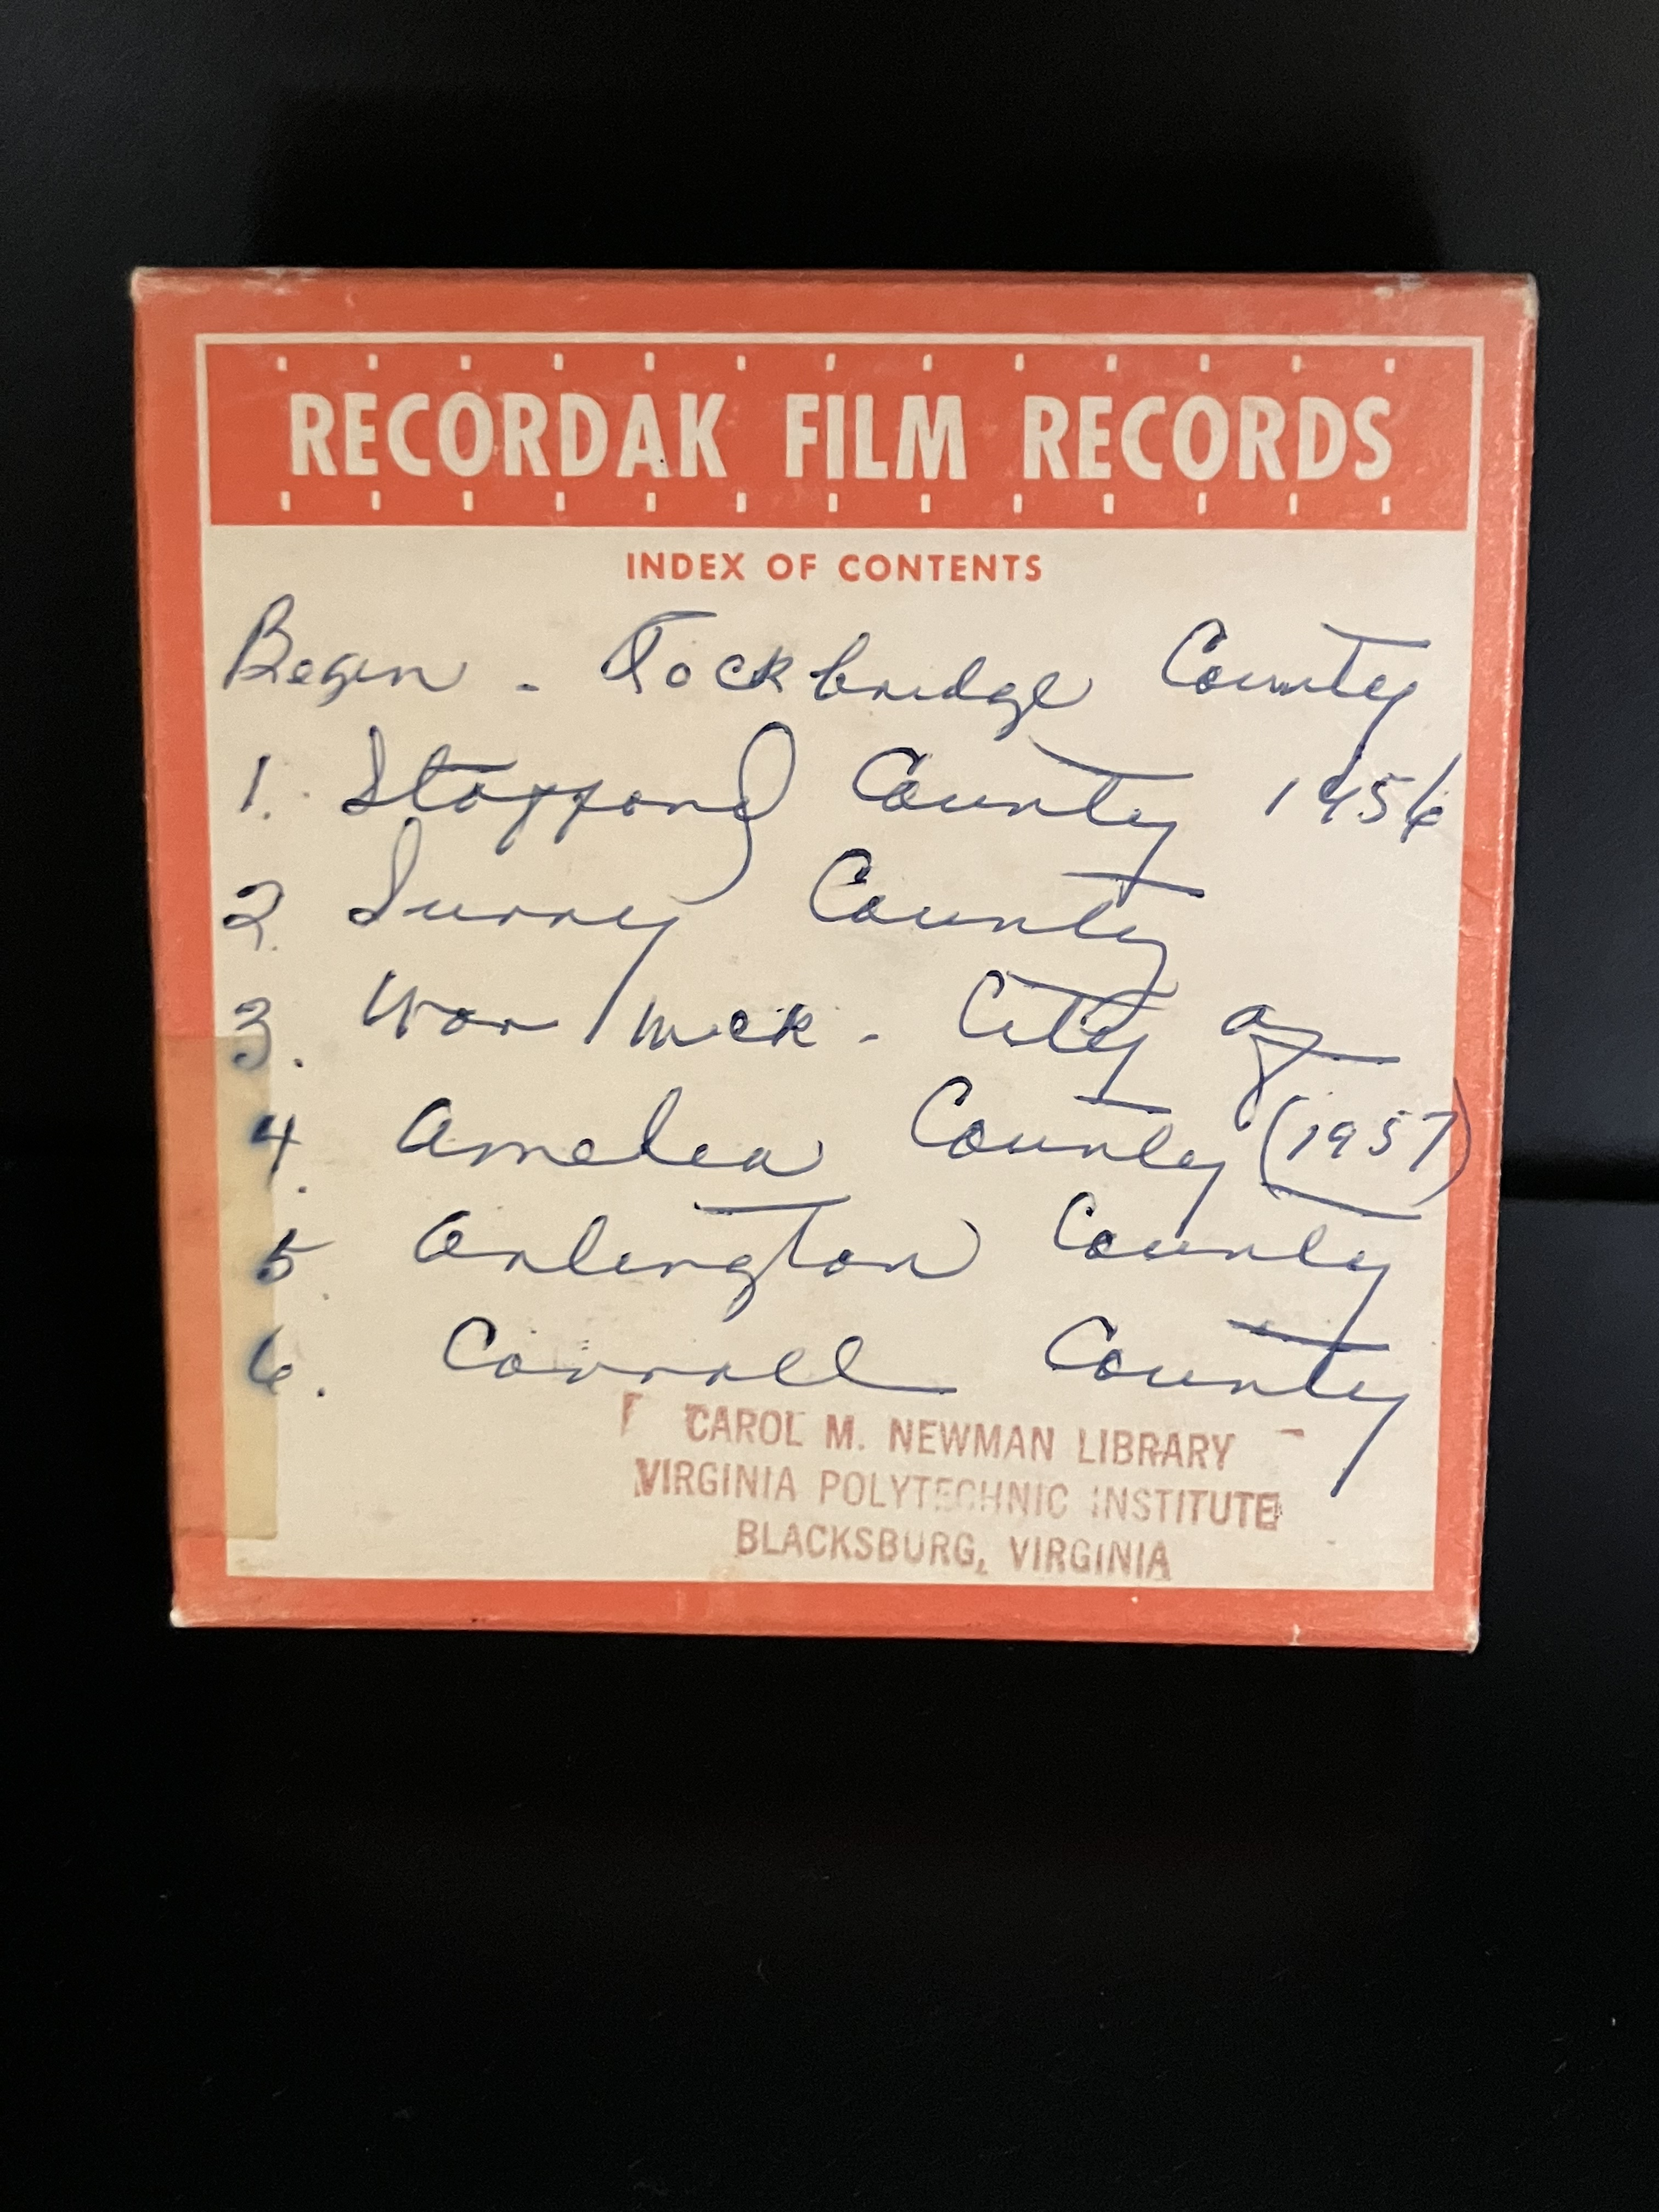 RECORDAK FILM RECORDS
INDEX OF CONTENTS
Begin - Rockbridge County
1. Stafford County 1956
2. Surry County
3. Warwick - City of
4. Amelia County (1957)
5. Arlington County
6. Carroll County
CAROL M. NEWMAN LIBRARY
VIRGINIA POLYTECHNIC INSTITUTE
BLACKSBURG, VIRGINIA